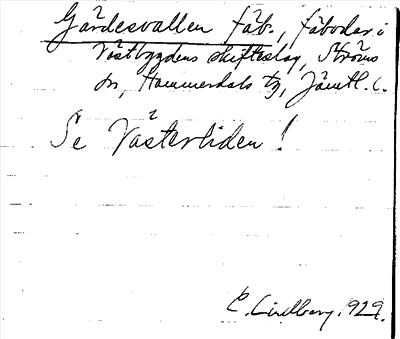 Gärdesvallen fäb., fäbodar i
Västbygdens skifteslag, Ströms
sn, Hammerdals tg, Jämtl. l.
Se Västerliden!
C. Lindberg. 1929.